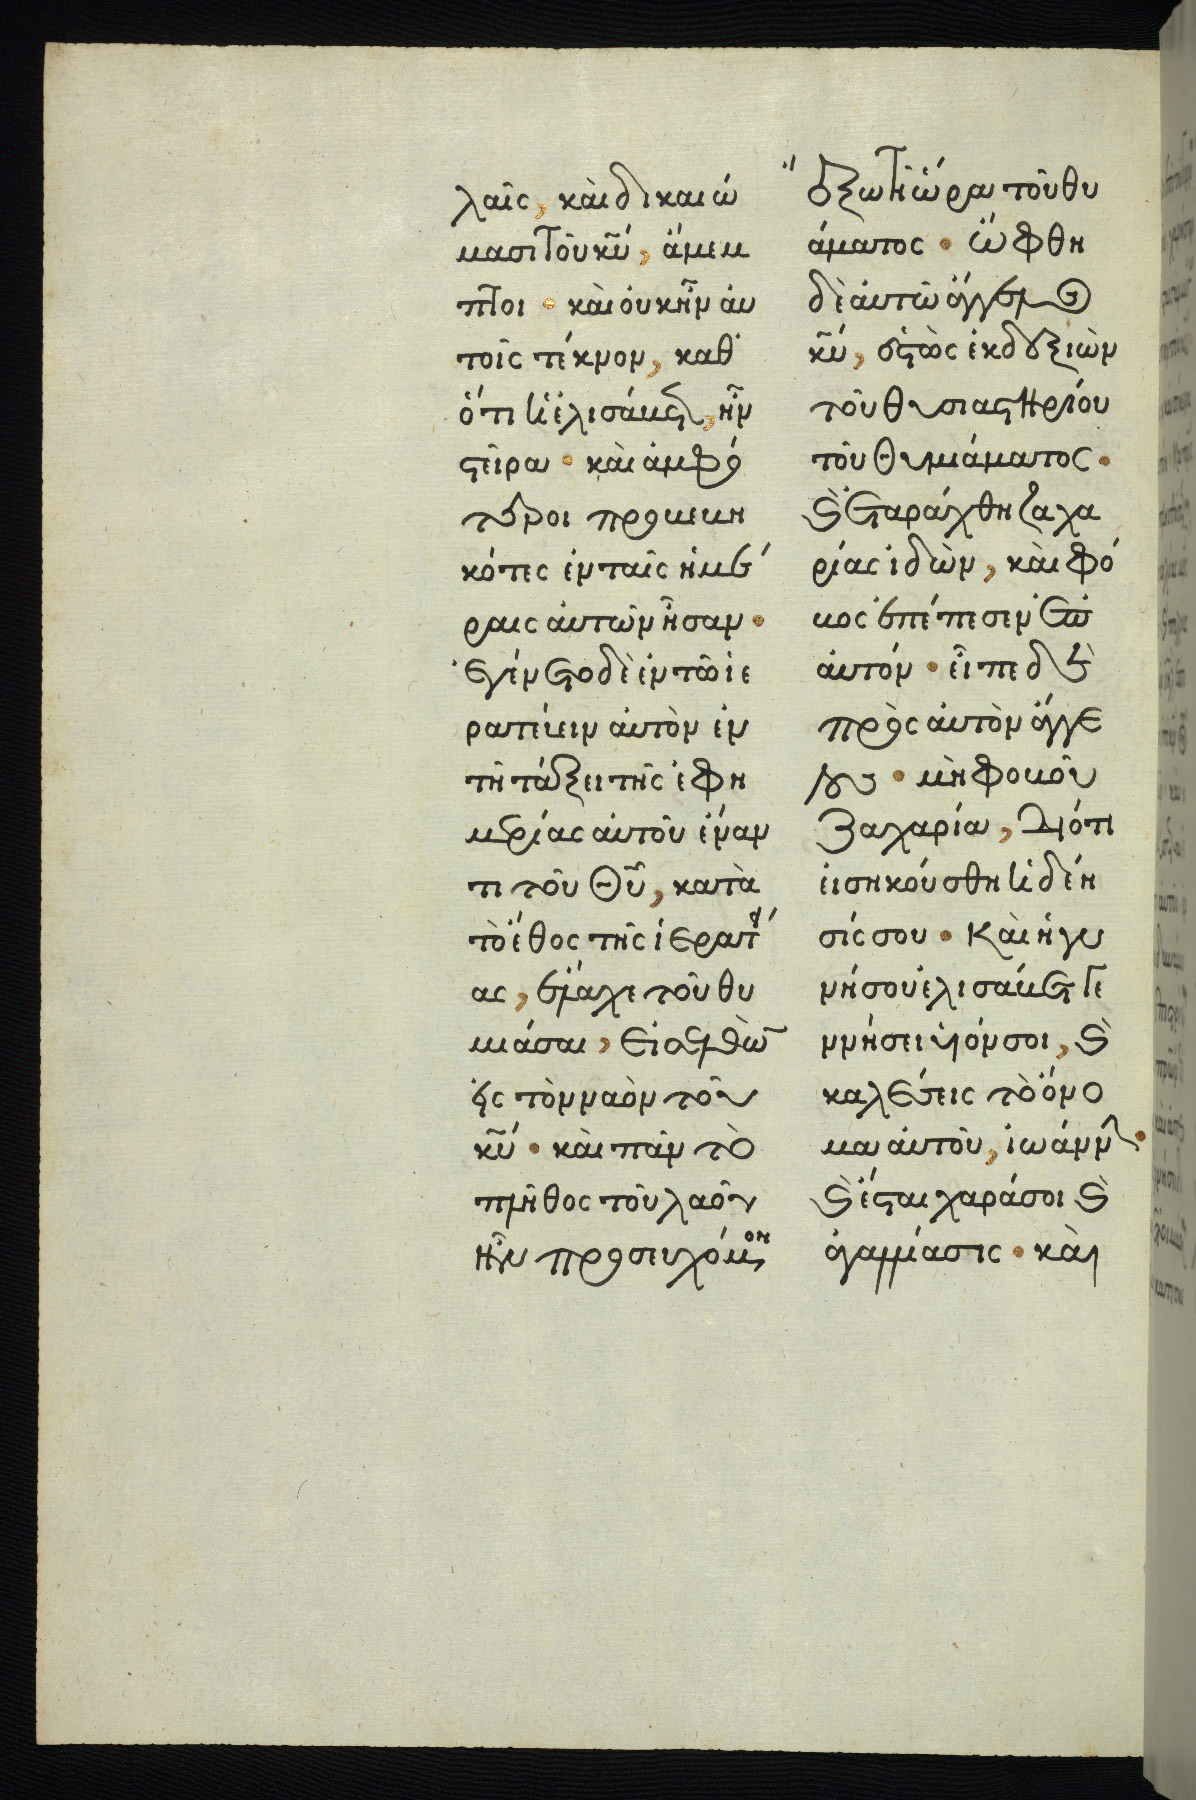 λαῖς, καὶ δικαιώ
μασι τοῦ κῡ́, ἄμεμ
πτοι · καὶ οὐκ ἦν αὐ
τοῖς τέκνον, καθ᾽
ότι ἡ ἐλισάβετ, ἦν
στεῖρα · καὶ ἀμφό
τεροι προβεβη
κότες ἐν ταῖς ἡμέ
ραις αὐτῶν ἦσαν ·
ἐγένετο δὲ ἐν τῶ ἱε
ρατεύειν αὐτὸν ἐν
τῆ τάξει τῆς ἐφη
μερίας αὐτοῦ ἔναν
τι τοῦ θῡ, κατὰ
τὸ ἔθος τῆς ἱερατεί
ας, ἔλαχε τοῦ θυ
μιάσαι, εἰσελθὼν
εἰς τὸν ναὸν τοῦ
κῡ́ · καὶ πᾶν τὸ
πλῆθος τοῦ λαοῦ
ἦν προσευχόμενον
ἔξω τῆ ὥρα τοῦ θυ
άματος · ὤφθη
δὲ αὐτῶ ἄγγελος
κῡ́, ἑστὼς ἐκ δεξιῶν
τοῦ θυσιαστηρίου
τοῦ θυμιάματος ·
καὶ ἐταράχθη ζαχα
ρίας ἰδὼν, καὶ φό
βος ἐπέπεσεν ἐπ᾽
αὐτόν · εἶπε δὲ
πρὸς αὐτὸν ὁ ἄγγε
λος · μὴ φοβοῦ
Ζαχαρία, διότι
εἰσηκούσθη ἡ δέη
σίς σου · καὶ ἡ γυ
νή σου ἐλισάβετ γε
ννήσει υἱόν σοι, καὶ
καλέσεις τὸ ὄνο
μα αὐτοῦ, ἰωάννην ·
καὶ ἔσται χαρά σοι καὶ
ἀγαλλίασις · καὶ